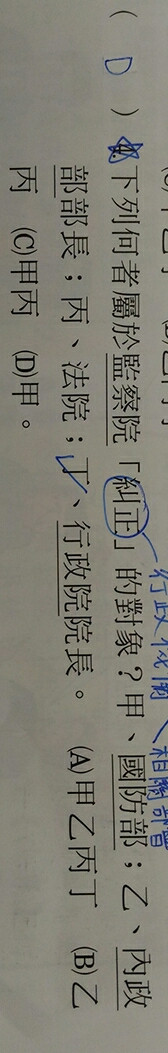 ( D ) 4.下列何者屬於監察院「糾正」的對象?甲、國防部;乙、內政
部部長;丙、法院;丁、行政院院長。 (A)甲乙丙丁 (B)乙
丙 (C)甲丙 (D)甲。
行政機關
相關部會